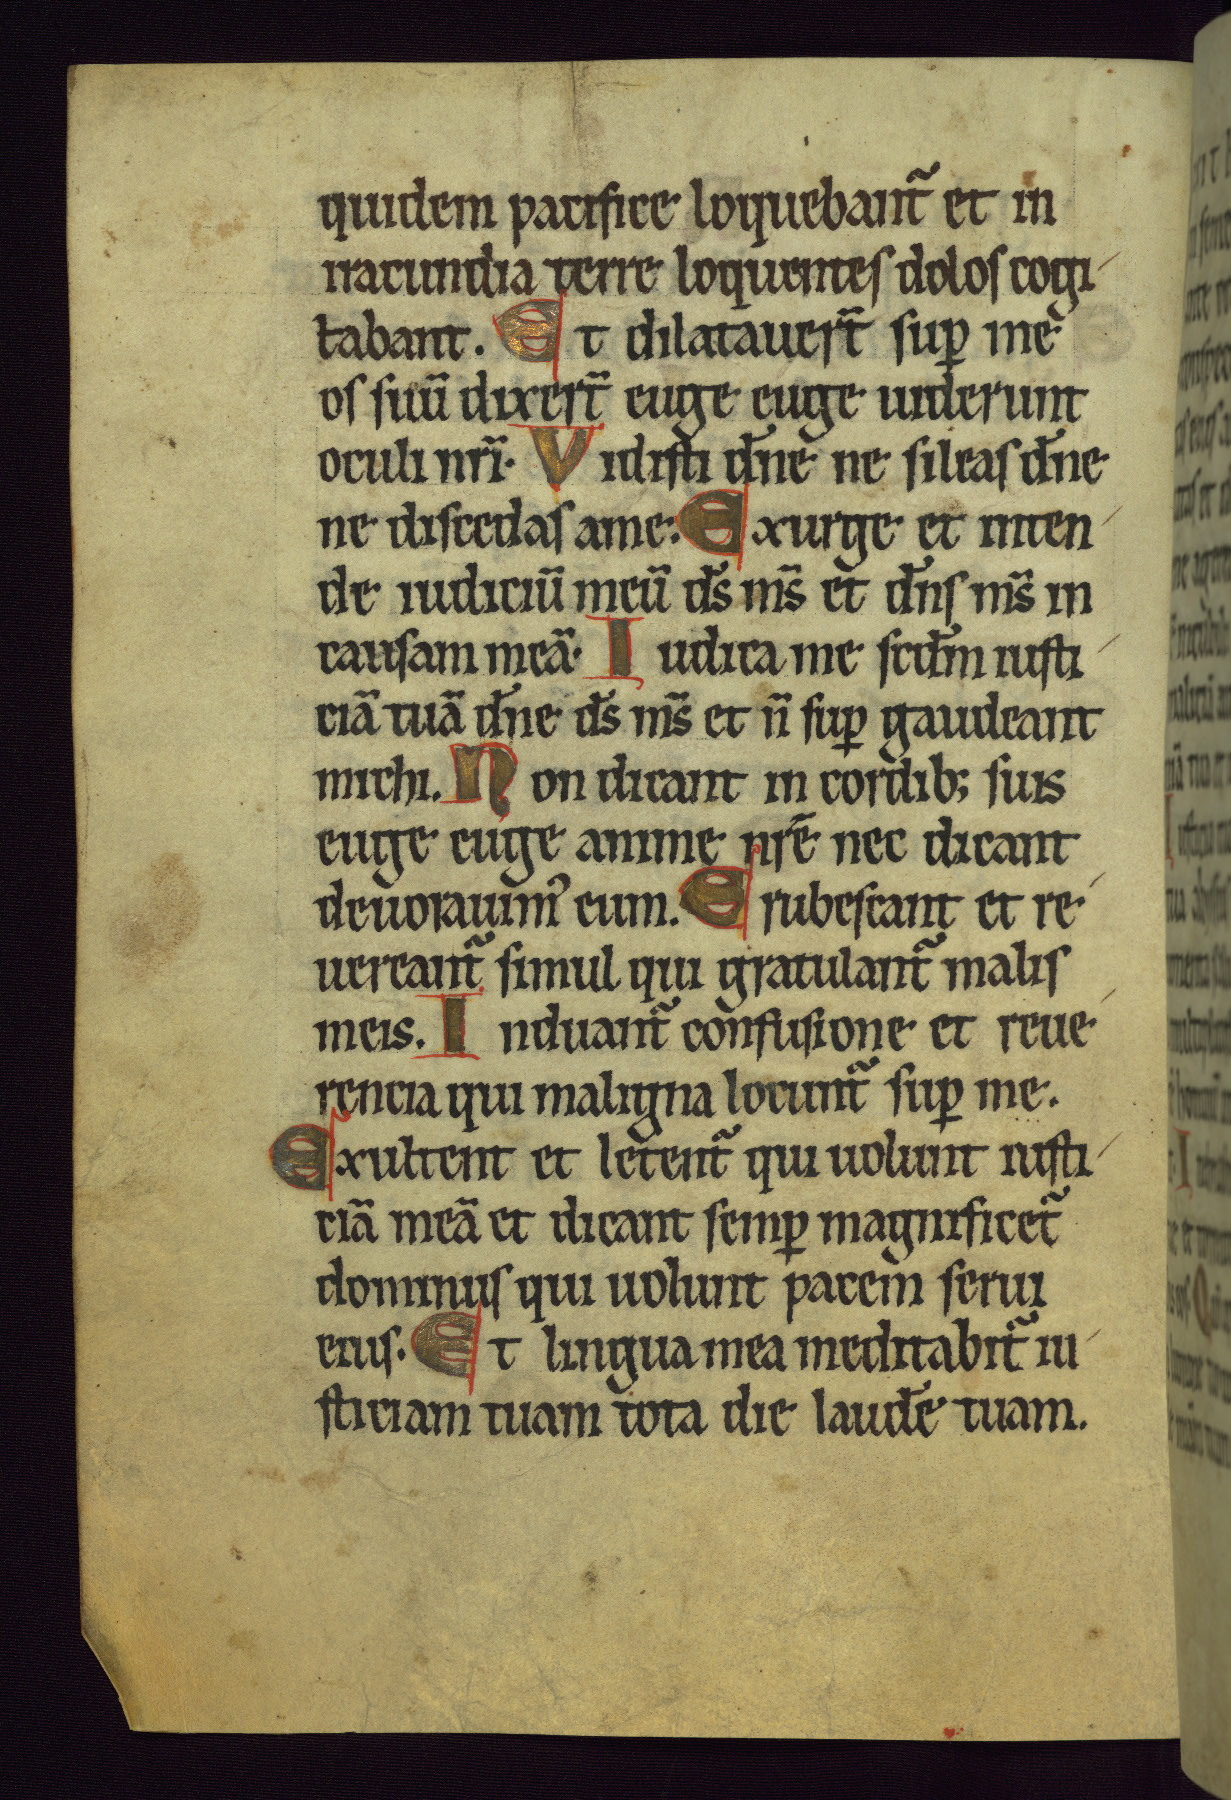 quidem pacifice loquebant᷑ et in
iracundia terre loquentes dolos cogi
tabant. Et dilatauer̄t suꝑ me
os suū dixer̄t euge euge uiderunt
oculi nr̄i. Vidisti dn̄e ne sileas dn̄e
ne discedas a me. Exurge et inten
de iudiciū meū ds̄ ms̄ et dn̄s ms̄ in
causam meā. Iudica me scd̄m iusti
ciā tuā dn̄e ds̄ ms̄ et n̄ suꝑ gaudeant
michi. Non dicant in cordib; suis
euge euge anime nr̄e nec dicant
deuorauimꝰ eum. Erubescant et re
uereant᷑ simul qui gratulant᷑ malis
meis. Induant᷑ confusione et reue
rencia qui maligna locunt᷑ suꝑ me.
Exultent et letent᷑ qui uolunt iusti
ciā meā et dicant semꝑ magnificet᷑
dominus qui uolunt pacem serui
eius. Et lingua mea meditabit᷑ iu
sticiam tuam tota die laudē tuam.